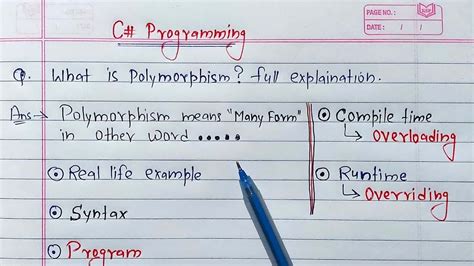 PAGE NO.:
DATE: / /
C# Programming
Q. What is Polymorphism? full explaination.
Ans → Polymorphism means "Many Form"
in other word .....
Real life example
Syntax
Program
Compile time
↳ Overloading
Runtime
↳ Overriding